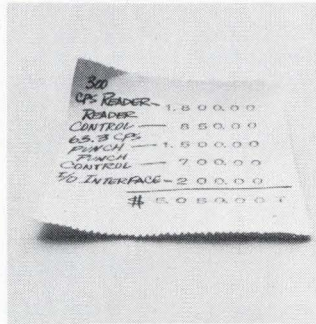 300
CPS READER - 1,800.00
READER
CONTROL - 850.00
63.3 CPS
PUNCH - 1,500.00
PUNCH
CONTROL - 700.00
I/O INTERFACE - 200.00
# 5,050.00 T